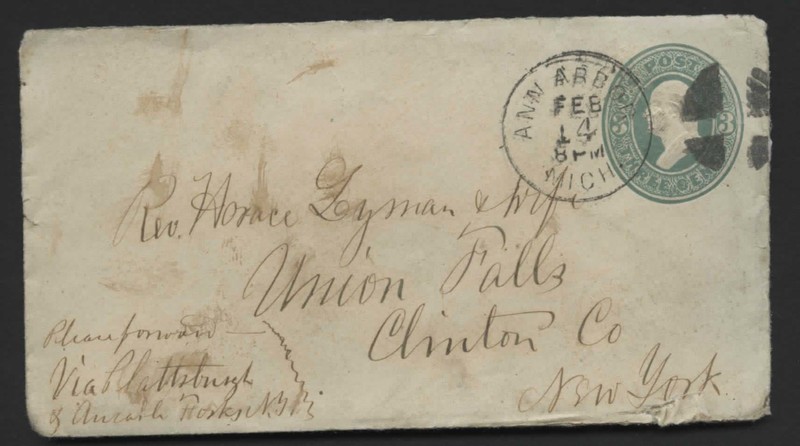 ANN ARBOR
FEB
14
8 PM
MICH
POST
THREE CE
3
3
Rev. Horace Lyman & Wife
Union Falls
Clinton Co
New York
Please forward
Via Plattsburgh
& Ausable Forks N.Y.